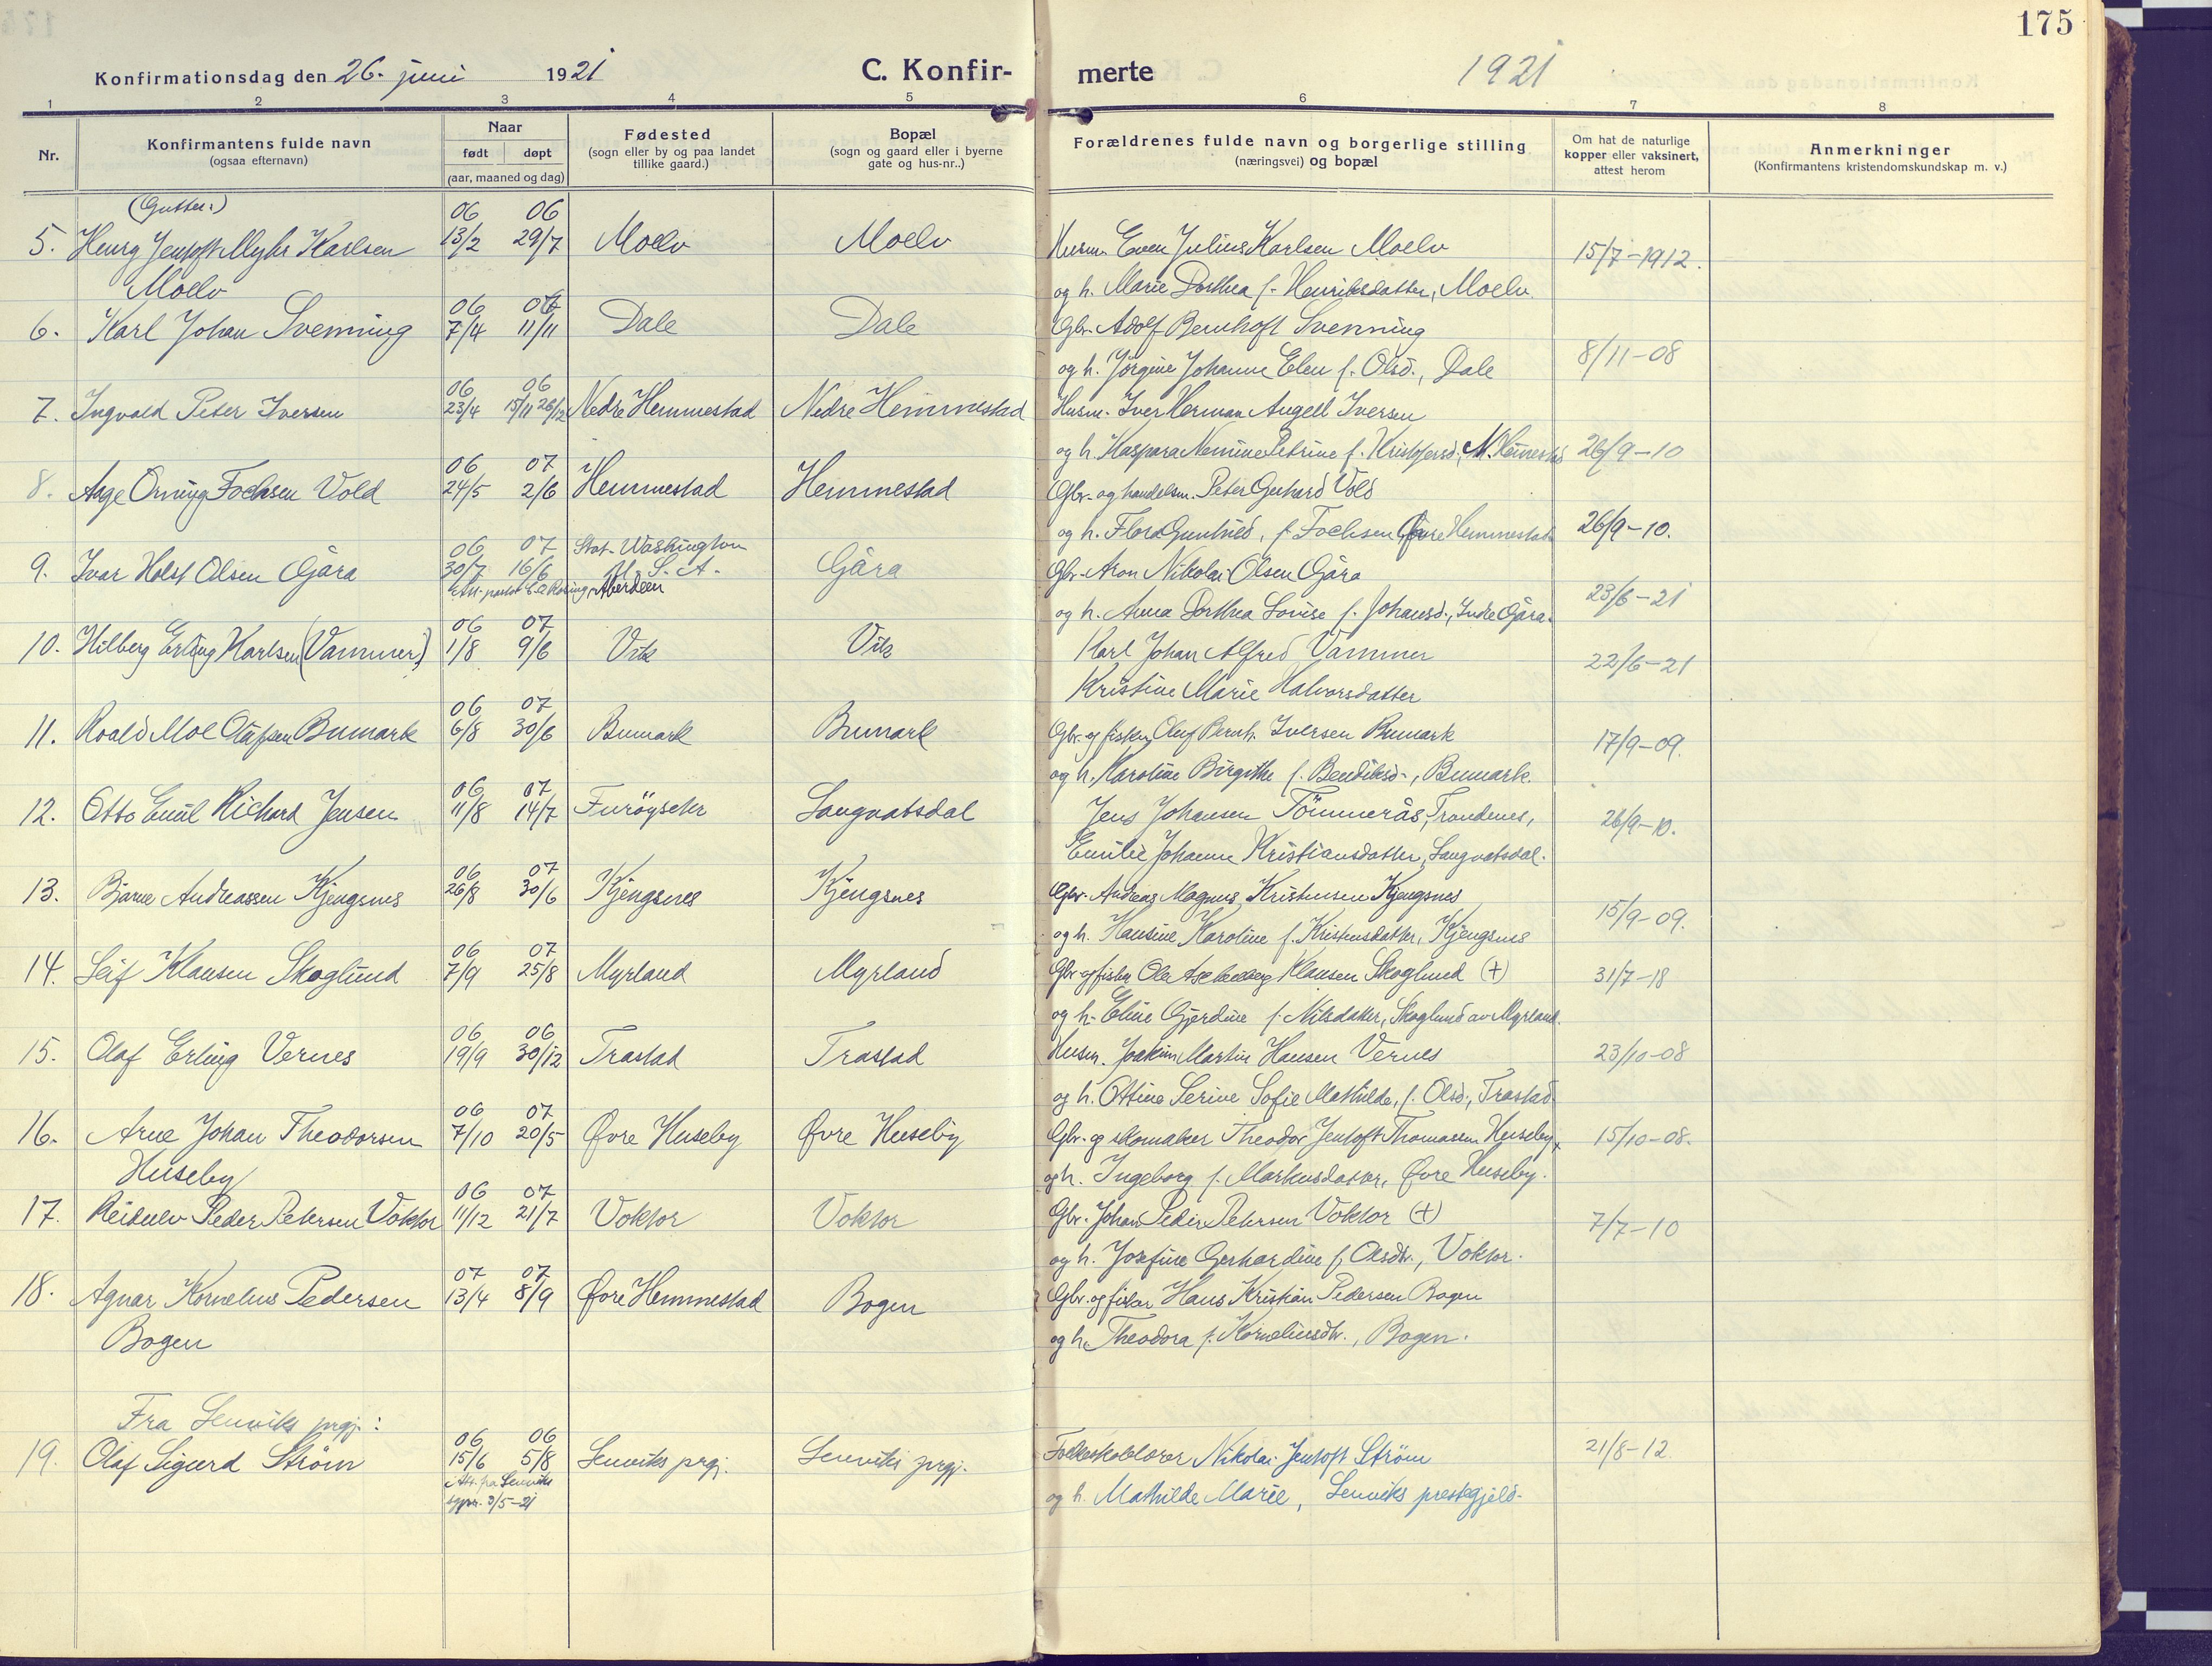 175
Konfirmationsdag den 26. juni 1921
C. Konfir-
merte
1921
1 2 3 4 5 6 7 8
Nr.
Konfirmantens fulde navn
(ogsaa efternavn)
Naar
født døpt
(aar, maaned og dag)
Fødested
(sogn eller by og paa landet
tillike gaard.)
Bopæl
(sogn og gaard eller i byerne
gate og hus-nr..)
Forældrenes fulde navn og borgerlige stilling
(næringsvei) og bopæl
Om hat de naturlige
kopper eller vaksinert,
attest herom
Anmerkninger
(Konfirmantens kristendomskundskap m. v.)
(Gutter:)
06 06
5. Henry Jentoft Myhr Karlsen 13/2 29/7 Moelv Moelv Husm. Even Julius Karlsen Moelv 15/7-1912.
Moelv og h. Marie Dorthea f. Henriksdatter, Moelv.
06 07
6. Karl Johan Svenning 7/4 11/11 Dale Dale Gbr. Adolf Bernhoft Svenning
og h. Jørgine Johanne Elen f. Olsd., Dale 8/11-08
06 06
7. Ingvald Peter Iversen 23/4 15/11 26/12 Nedre Hemmestad Nedre Hemmestad Husm. Iver Herman Angell Iversen
og h. Kaspara Petrine f. Kristofersd., N. 26/9-10
06 07
8. Aage Orning Fochsen Vold 24/5 2/6 Hemmestad Hemmestad Gbr. og handelsm. Peter Gerhard Vold
og h. Flora Gunhild, f. Fochsen Øvre Hemmestad 26/9-10.
06 07 Stat. Washington
9. Ivar Holst Olsen Gåra 30/7 16/6 U. S. A. Gåra Gbr. Aron Nikolai Olsen Gåra
Att. Aberdeen
og h. Anna Dorthea Lovise f. Johansd., Indre Gåra. 23/6-21
06 07
10. Hilberg Erling Karlsen (Vammer) 1/8 9/6 Vik Vik Karl Johan Alfred Vammer 22/6-21
Kristine Marie Halvorsdatter
06 07
11. Roald Moe Olufsen Bumark 6/8 30/6 Bumark Bumark Gbr. og fisker Oluf Bernh. Iversen Bumark 17/9-09.
og h. Karoline Birgithe f. Bendiksd., Bumark.
06 07
12. Otto Emil Richard Jensen 11/8 14/7 Langvatsdal Jens Johansen Tömmerås, Trondenes, 26/9-10.
Emilie Johanne Kristiansdatter, Langvatsdal.
06 07
13. Bjarne Andreassen Kjengsnes 26/8 30/6 Kjengsnes Kjengsnes Gbr. Andreas Magnus Kristensen Kjengsnes
og h. Hansine Karoline f. Kristensdatter, Kjengsnes 15/9-09.
06 07
14. Leif Klausen Skoglund 7/9 25/8 Myrland Myrland Gbr. og fisker Ole Klausen Skoglund (+) 31/7-18
og h. Eline Gjerdine f. Nilsdatter, Skoglund av Myrland.
06 06
15. Olaf Erling Vernes 19/9 30/12 Trastad Trastad Husm. Joakim Martin Hansen Vernes 23/10-08
og h. Ottine Serine Sofie Mathilde, f. Olsd., Trastad
06 07
16. Arne Johan Theodorsen 7/10 20/5 Øvre Huseby Øvre Huseby Gbr. og skomaker Theodor Jentoft Thomassen Huseby 15/10-08.
Huseby og h. Ingeborg f. Markusdatter, Øvre Huseby.
06 07
17. Reidulv Peder Petersen Voktor 11/12 21/7 Voktor Voktor Gbr. Johan Peder Petersen Voktor (+) 7/7-10
og h. Josefine Gerhardine f. Olsdtr., Voktor.
07 07
18. Agnar Kornelius Pedersen 13/4 8/9 Øvre Hemmestad Bogen Gbr. og fisker Hans Kristian Pedersen Bogen
Bogen og h. Theodora f. Korneliusdtr., Bogen.
Fra Lenviks prgj.:
06 06
19. Olaf Sigurd Strøm 15/6 5/8 Lenviks prgj. Lenviks prgj. Folkeskolelærer Nikolai Jentoft Strøm 21/8-12
Att. fra Lenviks
sgpr. 3/5-21
og h. Mathilde Marie, Lenviks prestegjeld.